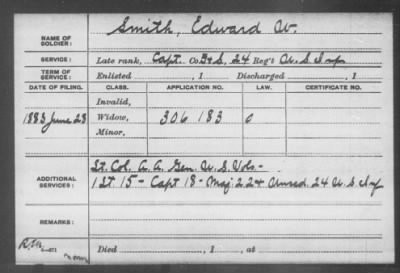 NAME OF SOLDIER: Smith, Edward W.
SERVICE: Late rank, Capt. Co. F & S, 24 Reg't U. S. Inf
TERM OF SERVICE: Enlisted , 1 Discharged , 1
DATE OF FILING. CLASS. APPLICATION NO. LAW. CERTIFICATE NO.
Invalid,
1883 June 23 Widow, 306183 0
Minor,
ADDITIONAL SERVICES: Lt. Col. A. A. Gen. U. S. Vols-
1 Lt 15 - Capt 18 - Maj. 2 24 24 U. S. Inf
REMARKS:
Died , 1 , at